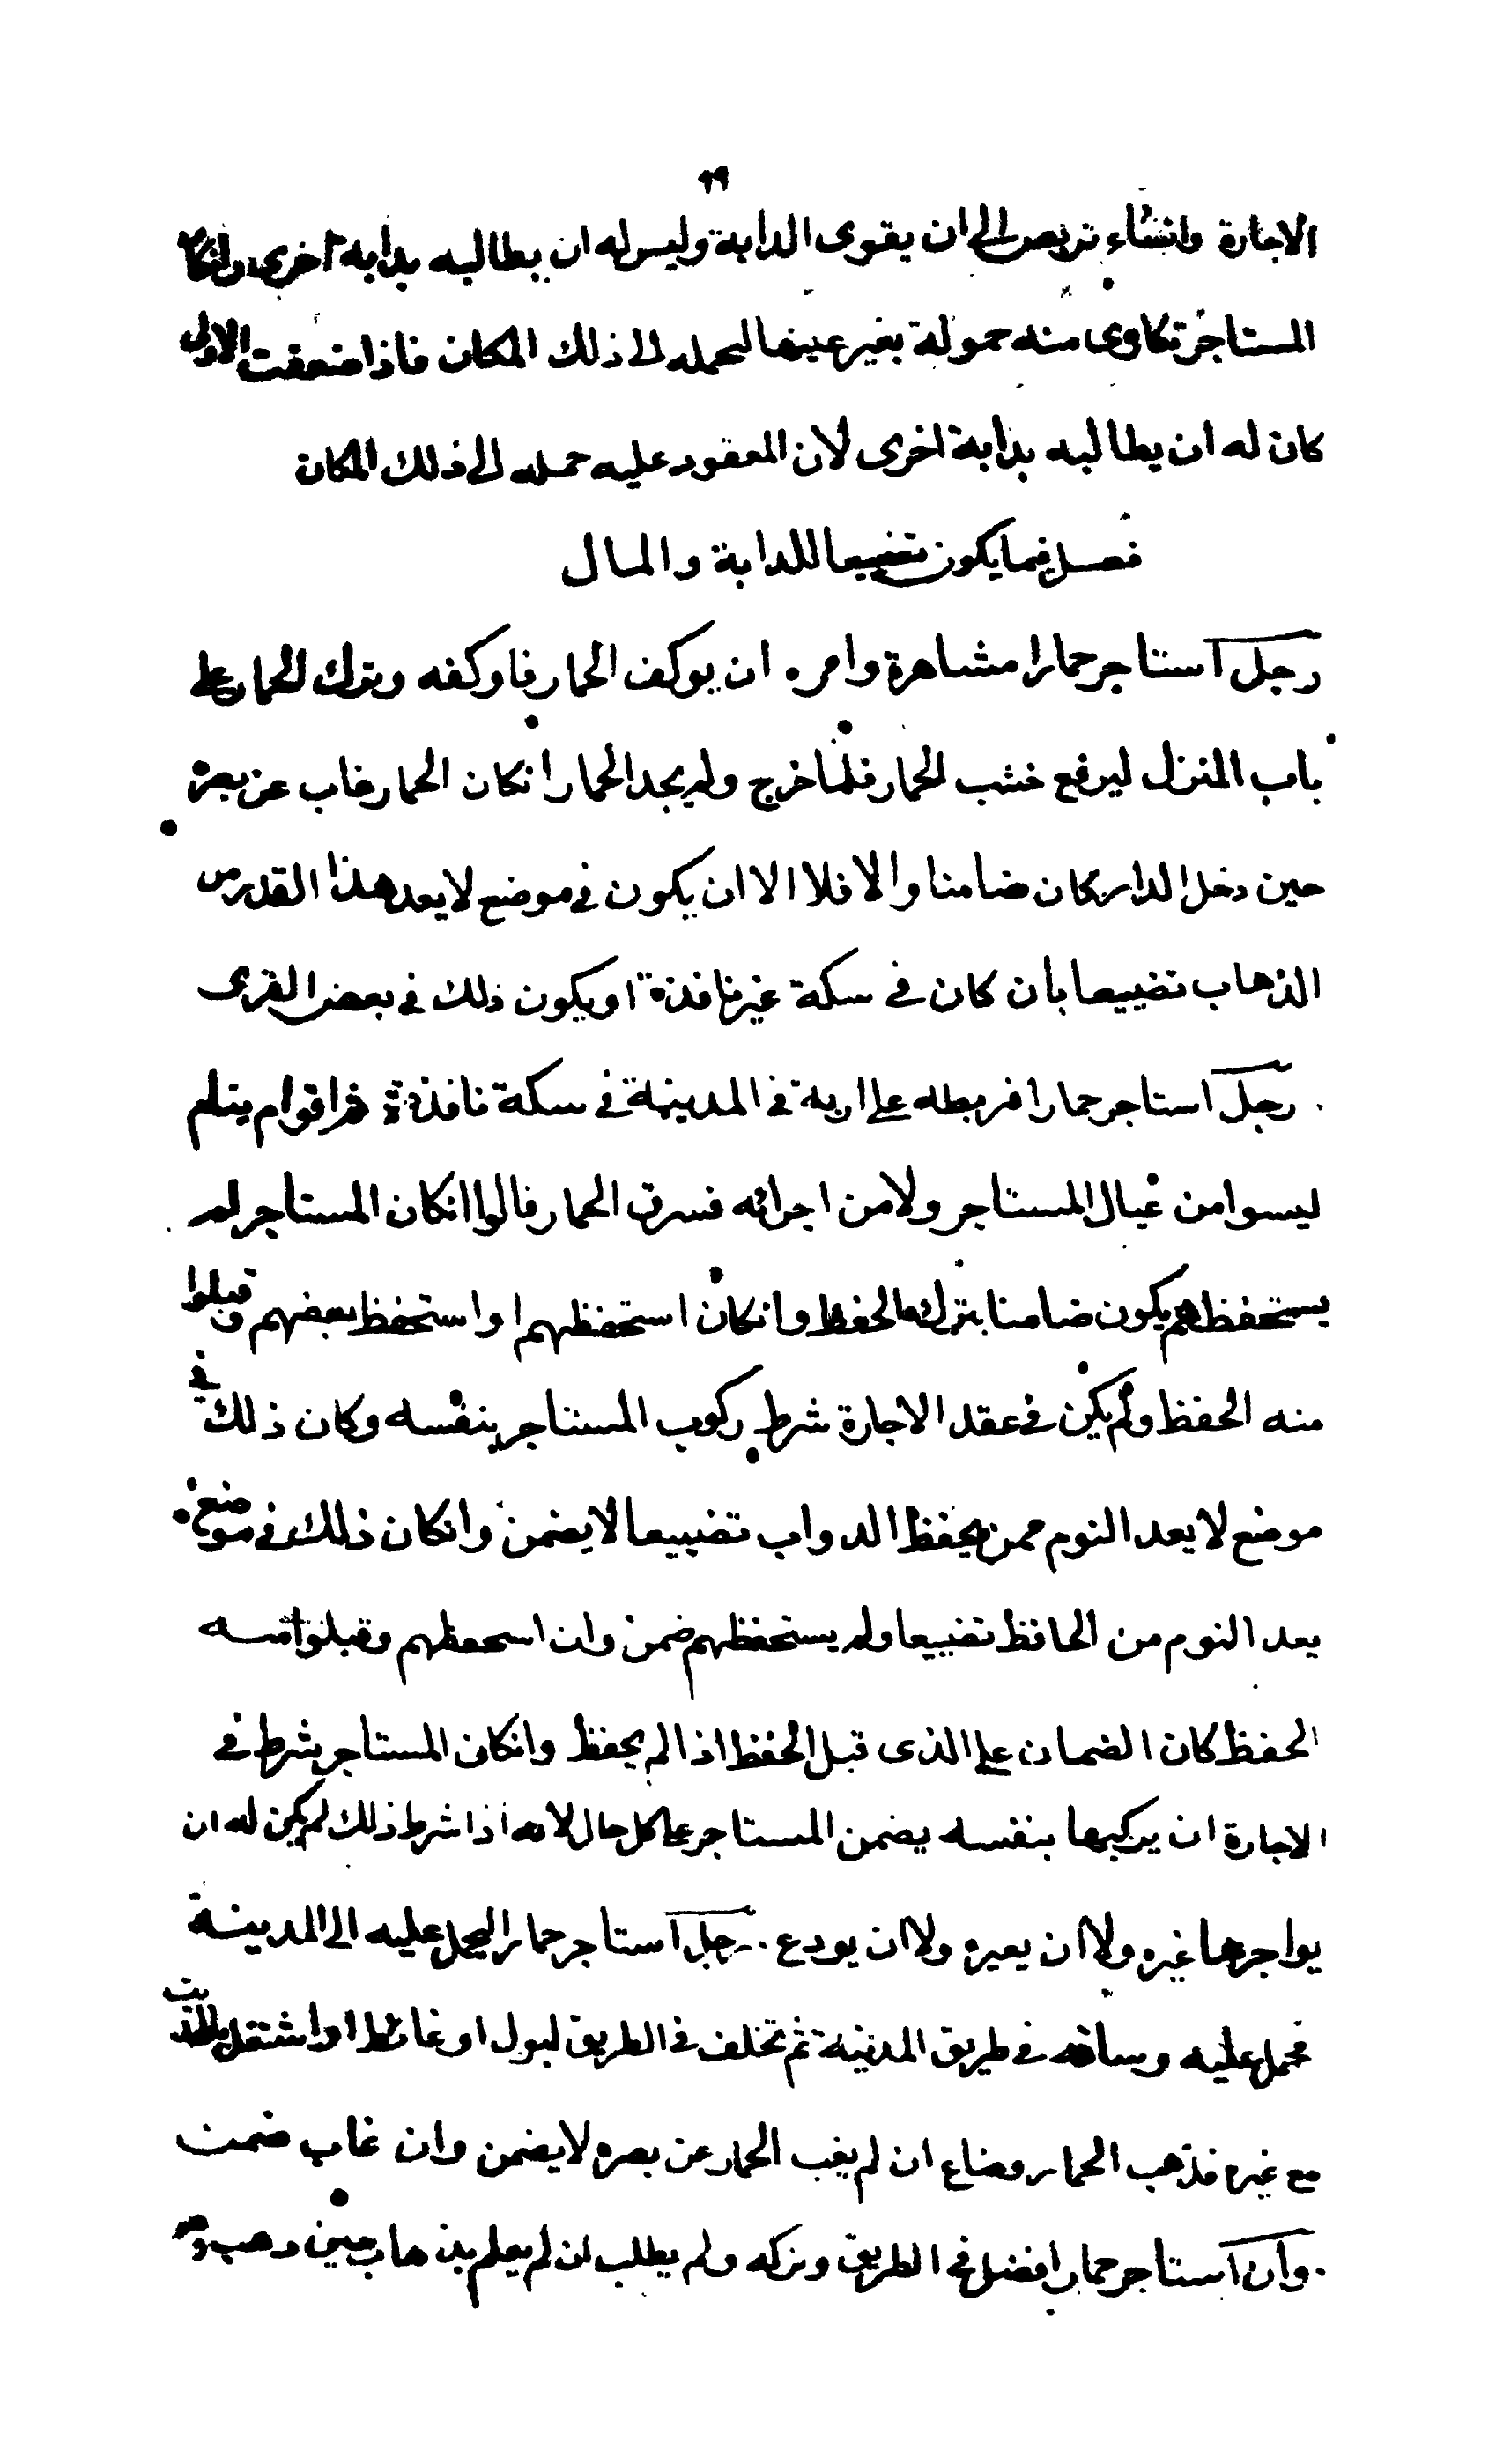 ٦٩
الاجارة وانشاء تربص الى ان يقوى الدابة وليس له ان يطالبه بدابة اخرى وانكا
المستاجر تكاوى منه حمولة بغير عينها ليحمله الى ذلك المكان فاذا ضعفت الاولى
كان له ان يطالبه بدابة اخرى لان المعقود عليه حمله الى ذلك المكان
فصل فيما يكون تضييعا للدابة والمال
رجل استاجر حمارا مشاهرة وامره ان يوكف الحمار فاوكفه وترك الحمار على
باب المنزل ليرفع خشب الحمار فلما خرج ولم يجد الحمار انكان الحمار غاب عن بصره
حين دخل الدار كان ضامنا والا فلا الا ان يكون في موضع لا يعد هذا القدر من
الذهاب تضييعا بان كان في سكة غير نافذة او يكون ذلك في بعض القرى
رجل استاجر حمارا فربطه على اريه في المدينة في سكة نافذة ثمه اقوام ينام
ليسوا من عيال المستاجر ولا من اجرائه فسرق الحمار قالوا انكان المستاجر لم
يستحفظهم يكون ضامنا بترك الحفظ وانكان استحفظهم او استحفظ بعضهم وقبلوا
منه الحفظ ولم يكن في عقد الاجارة شرط ركوب المستاجر بنفسه وكان ذلك في
موضع لا يعد النوم ممن يحفظ الدواب تضييعا لا يضمن وانكان ذلك في موضع
يعد النوم من الحافظ تضييعا ولم يستحفظهم ضمن وان استحفظهم وقبلوا منه
الحفظ كان الضمان على الذى قبل الحفظ اذا لم يحفظ وانكان المستاجر شرط في
الاجارة ان يركبها بنفسه يضمن المستاجر على كل حال لانه اذا شرط ذلك لم يكن له ان
يواجرها غيره ولا ان يعيره ولا ان يودع رجل استاجر حمارا ليحمل عليه الى المدينة
فحمل عليه وساقه في طريق المدينة ثم تخلف في الطريق لبول او غائط او اشتغل بالحديث
مع غيره فذهب الحمار وضاع ان لم يغب الحمار عن بصره لا يضمن وان غاب ضمن
وان استاجر حمارا فضل في الطريق وتركه ولم يطلب ان لم يعلم بذهاب حين ذهب